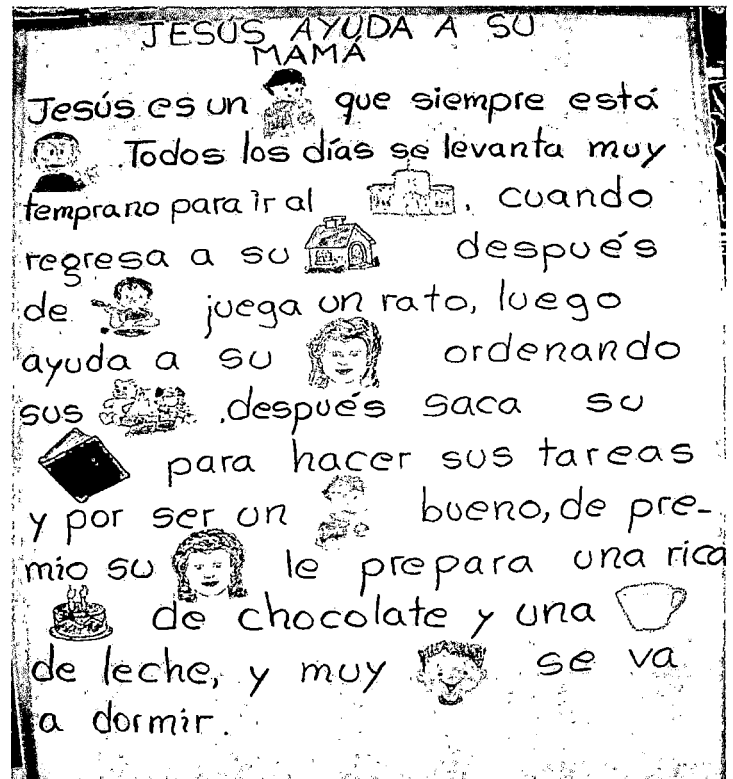 JESÚS AYUDA A SU
MAMÁ
Jesús es un que siempre está
. Todos los días se levanta muy
temprano para ir al . cuando
regresa a su después
de juega un rato, luego
ayuda a su ordenando
sus . después saca su
para hacer sus tareas
y por ser un bueno, de pre-
mio su le prepara una rica
de chocolate y una
de leche, y muy se va
a dormir.